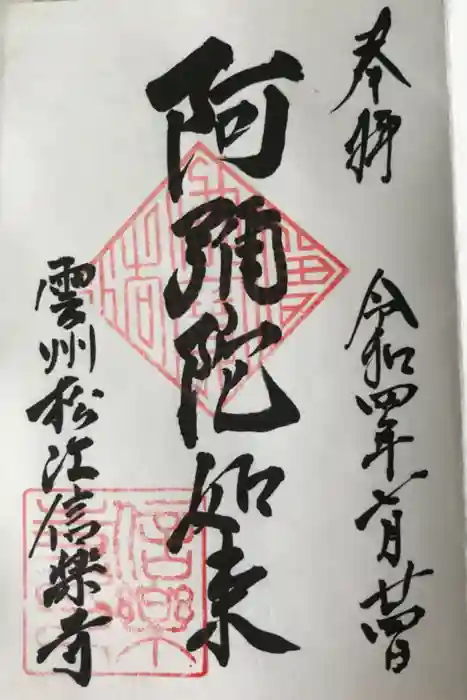 奉拝
令和四年六月廿四日
阿彌陀如来
雲州松江信楽寺
信樂